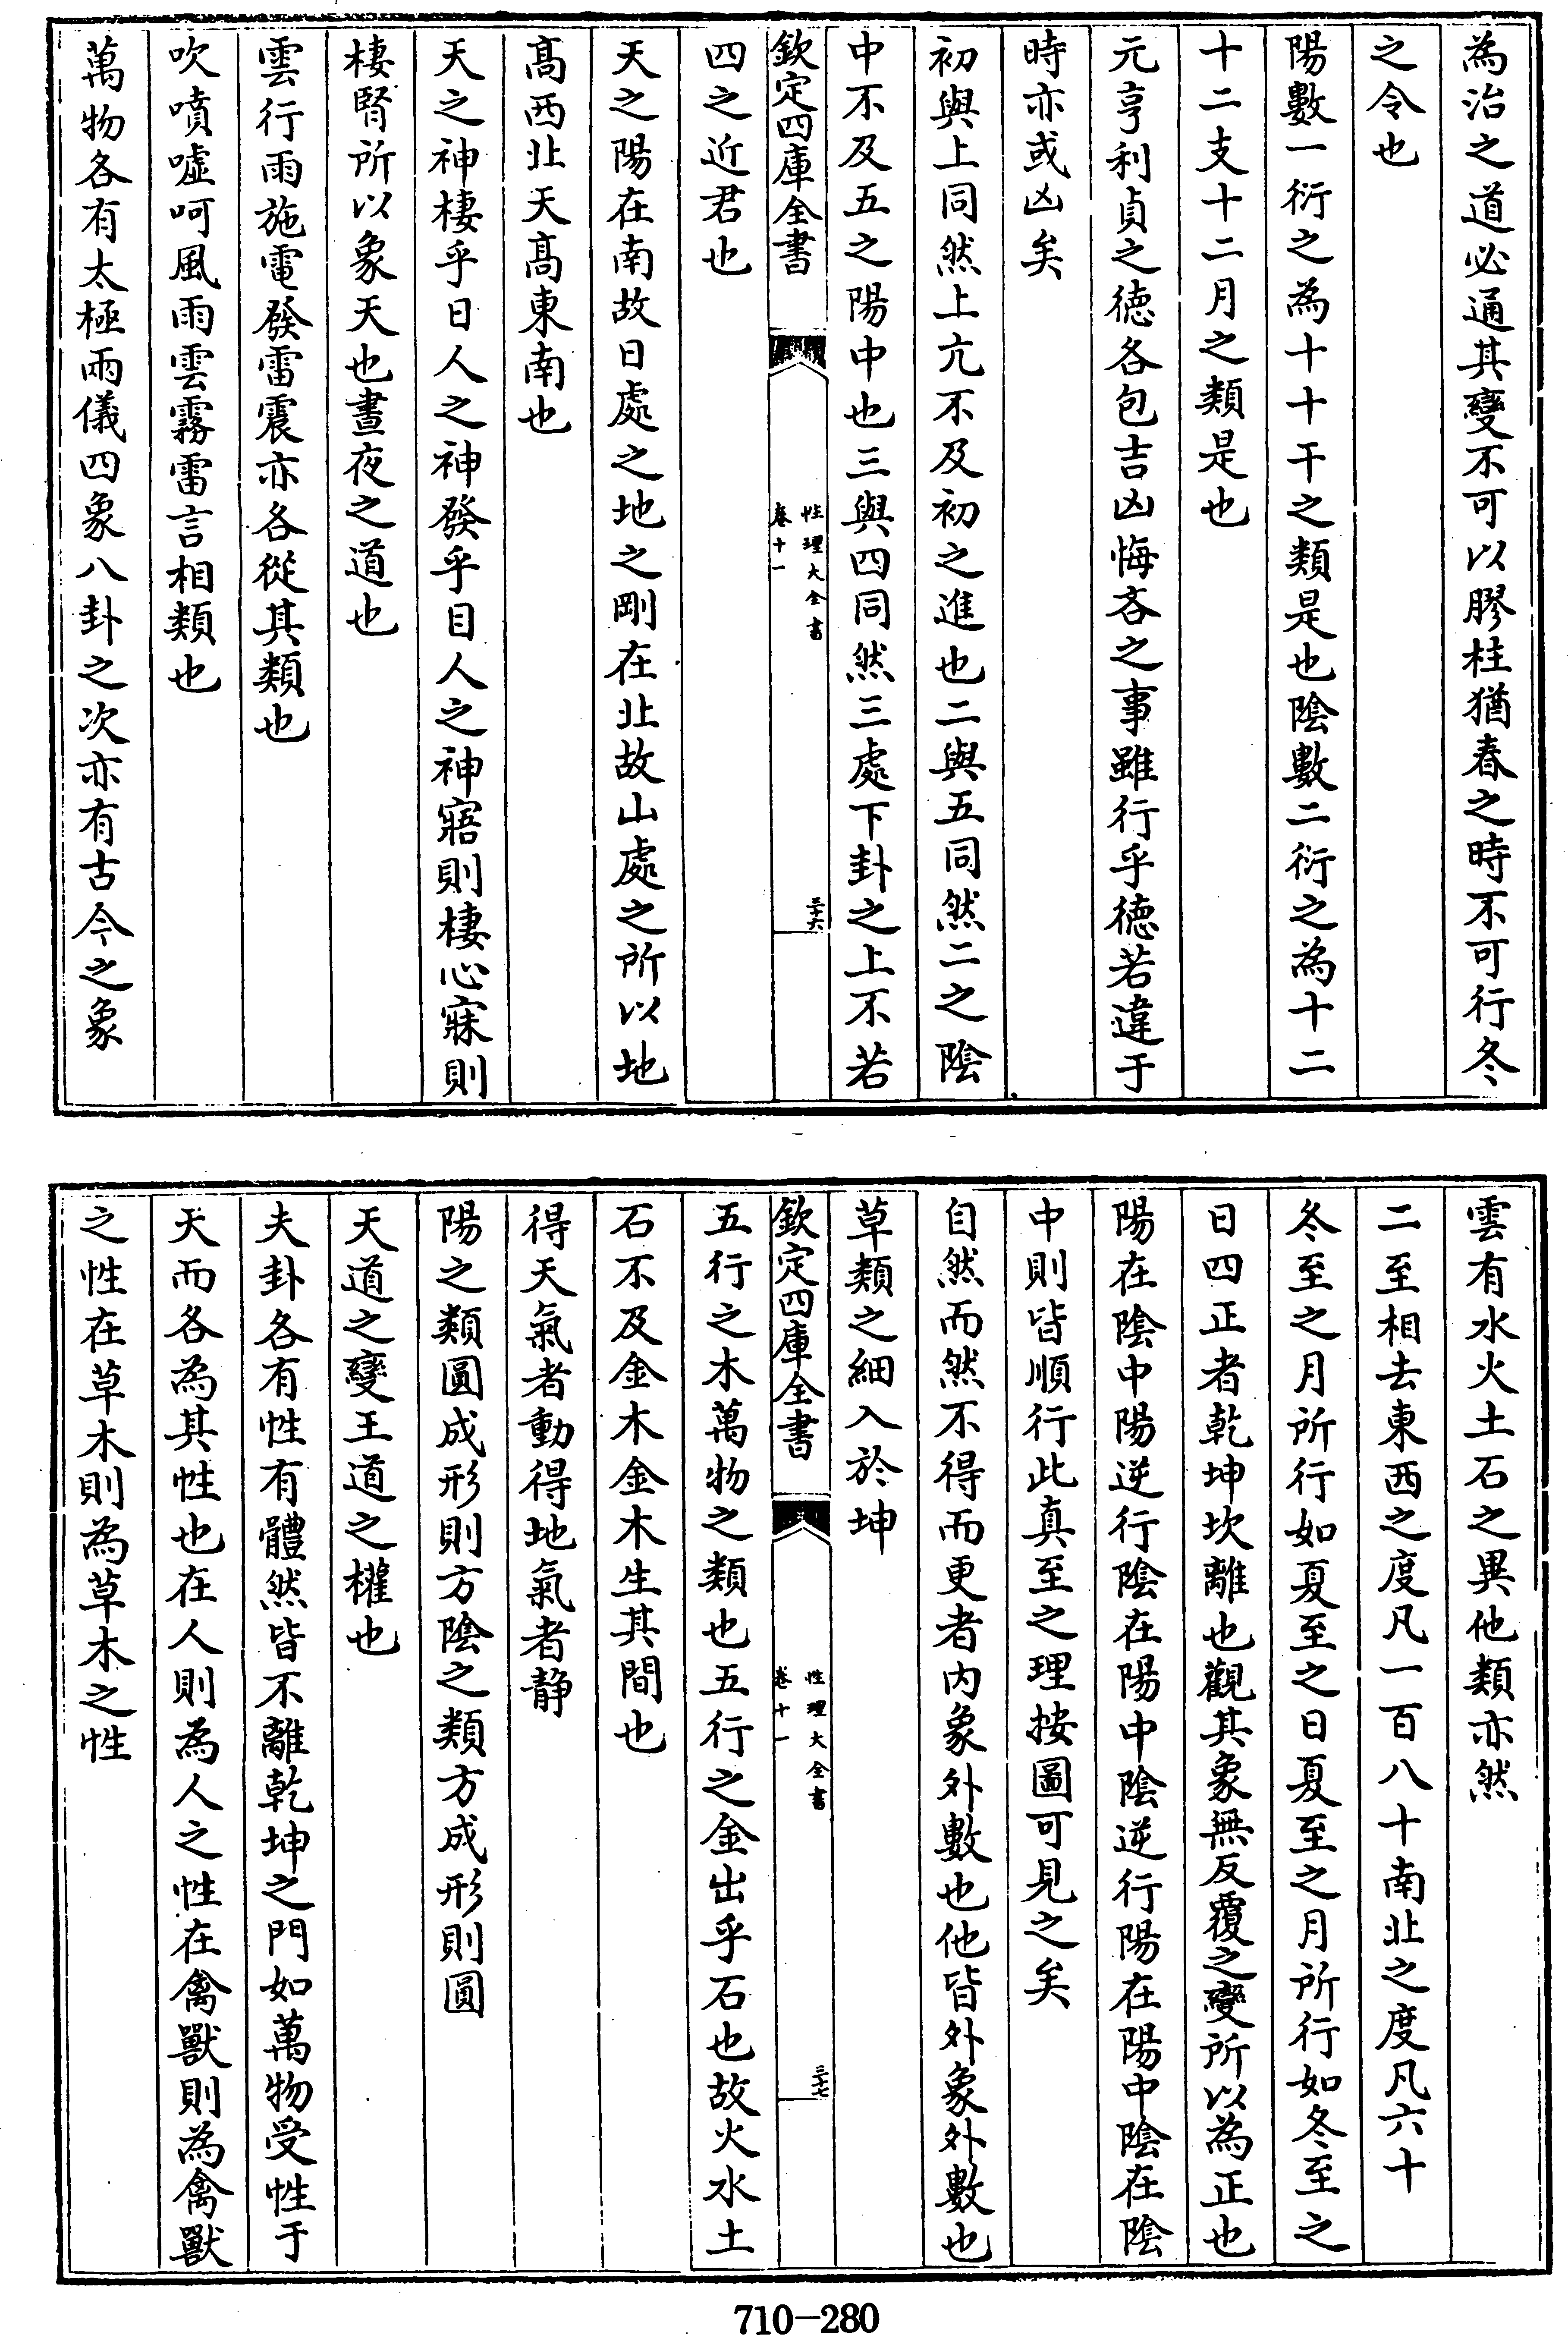 為治之道必通其變不可以膠柱猶春之時不可行冬
之令也
陽數一衍之為十十干之類是也陰數二衍之為十二
十二支十二月之類是也
元亨利貞之德各包吉凶悔吝之事雖行乎德若違于
時亦或凶矣
初與上同然上亢不及初之進也二與五同然二之陰
中不及五之陽中也三與四同然三處下卦之上不若
欽定四庫全書
性理大全書
卷十一
三十六
四之近君也
天之陽在南故日處之地之剛在北故山處之所以地
高西北天高東南也
天之神棲乎日人之神發乎目人之神寤則棲心寐則
棲腎所以象天也晝夜之道也
雲行雨施電發雷震亦各從其類也
吹噴噓呵風雨雲霧雷言相類也
萬物各有太極兩儀四象八卦之次亦有古今之象
雲有水火土石之異他類亦然
二至相去東西之度凡一百八十南北之度凡六十
冬至之月所行如夏至之日夏至之月所行如冬至之
日四正者乾坤坎離也觀其象無反覆之變所以為正也
陽在陰中陽逆行陰在陽中陰逆行陽在陽中陰在陰
中則皆順行此真至之理按圖可見之矣
自然而然不得而更者内象外數也他皆外象外數也
草類之細入於坤
欽定四庫全書
性理大全書
卷十一
三十七
五行之木萬物之類也五行之金出乎石也故火水土
石不及金木金木生其間也
得天氣者動得地氣者静
陽之類圓成形則方陰之類方成形則圓
天道之變王道之權也
夫卦各有性有體然皆不離乾坤之門如萬物受性于
天而各為其性也在人則為人之性在禽獸則為禽獸
之性在草木則為草木之性
710-280